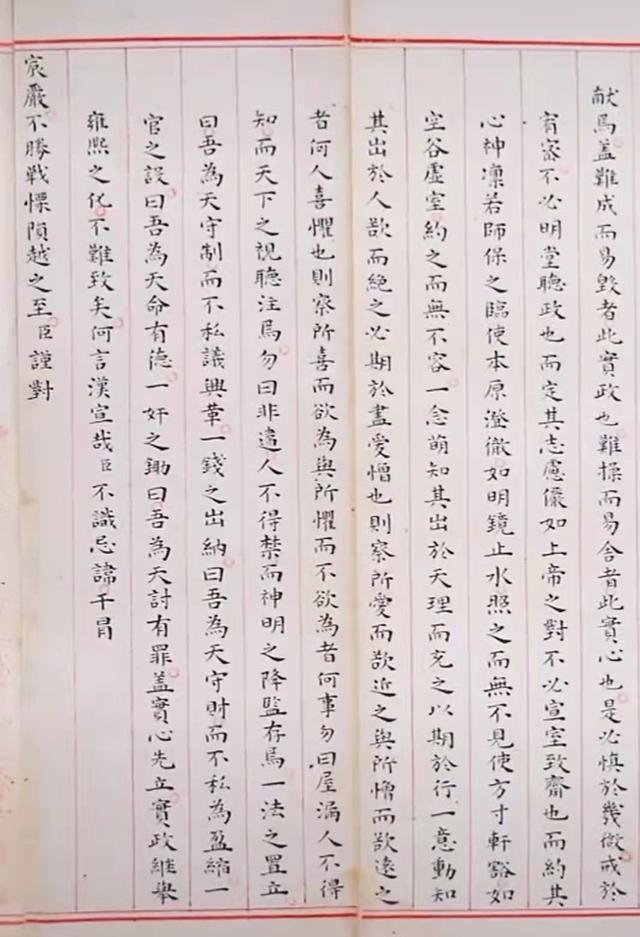 献焉盖難成而易毀者此實政也難操而易舍者此實心也是必慎於幾微戒於
宥密不必明堂聽政也而定其志慮儼如上帝之對不必宣室致齋也而約其
心神凜若師保之臨使本原澄徹如明鏡止水照之而無不見使方寸軒豁如
空谷虛室約之而無不容一念萌知其出於天理而充之以期於行一意動知
其出於人欲而絶之必期於盡愛憎也則察所愛而欲近之與所憎而欲遠之
者何人喜懼也則察所喜而欲為與所懼而不欲為者何事勿曰屋漏人不得
知而天下之視聽注焉勿曰非違人不得禁而神明之降監存焉一法之置立
曰吾為天守制而不私議興革一錢之出納曰吾為天守財而不私為盈縮一
官之設曰吾為天命有德一奸之鋤曰吾為天討有罪盖實心先立實政繼舉
雍熙之化不難致矣何言漢宣哉臣不識忌諱干冒
宸嚴不勝戰慄隕越之至臣謹對